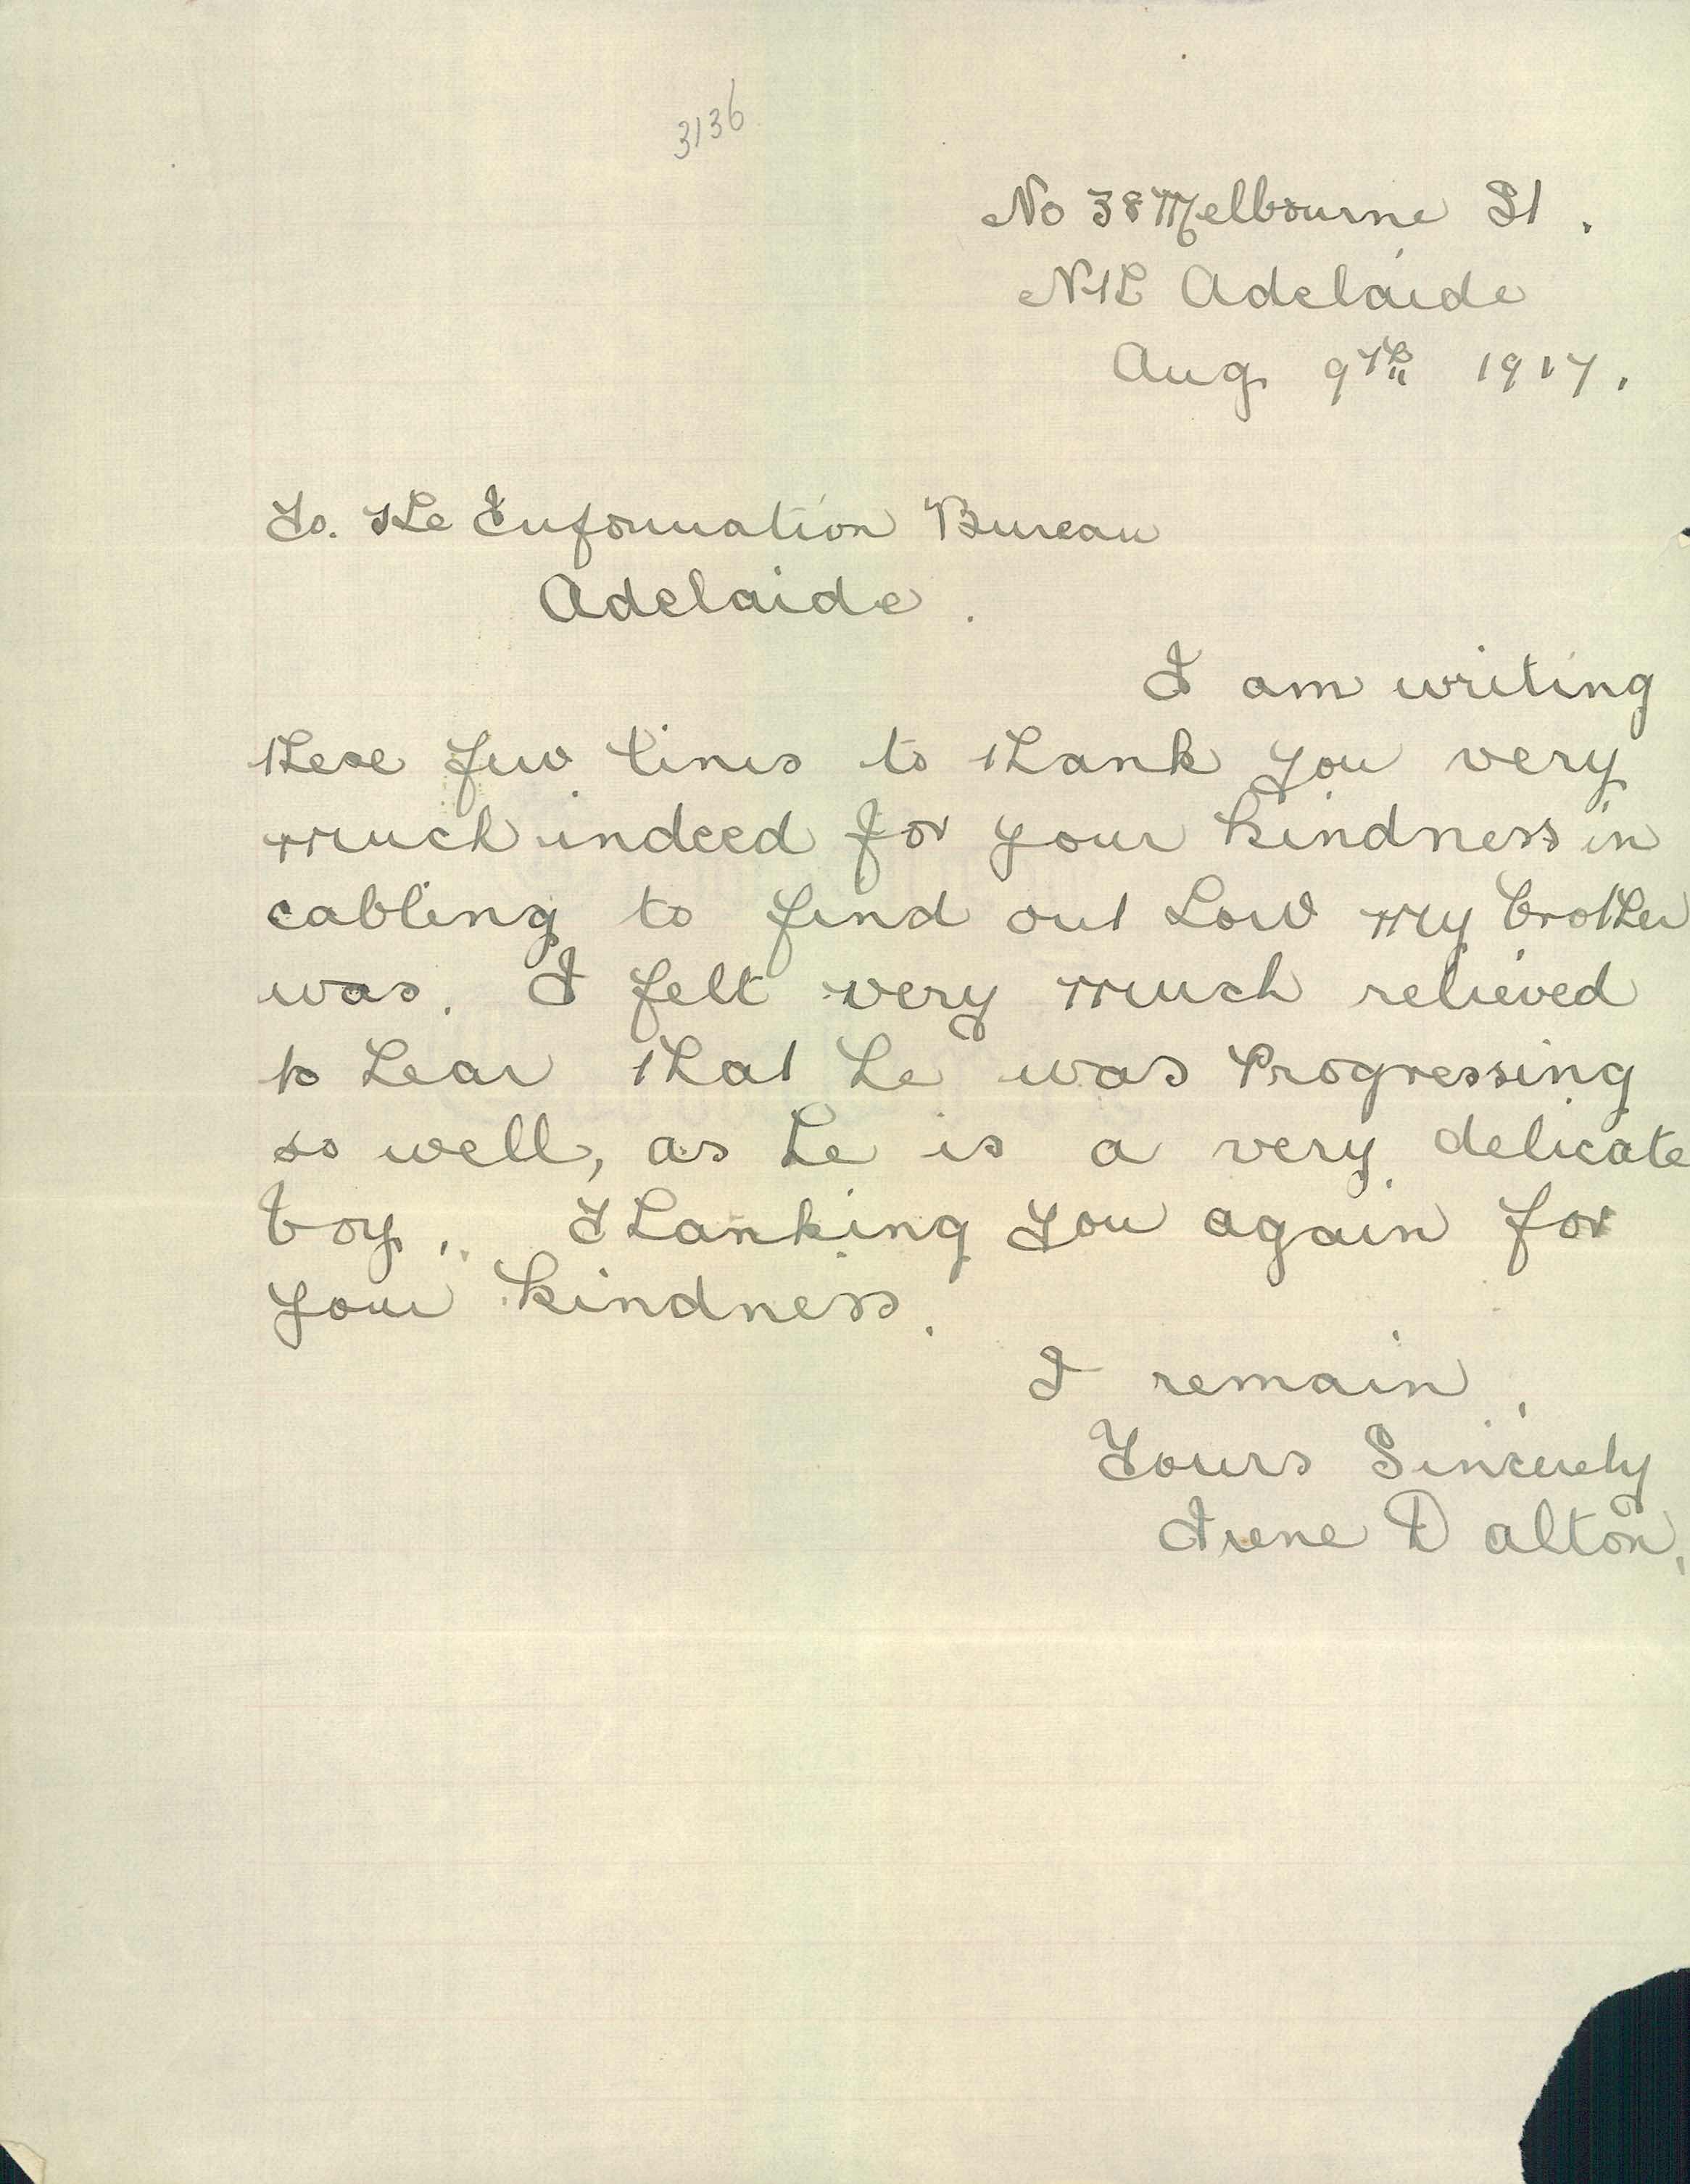 3136
No 38 Melbourne St.
Nth Adelaide
Aug 9th 1917.
To. The Information Bureau
Adelaide.
I am writing
these few lines to thank you very
much indeed for your kindness in
cabling to find out how my brother
was. I felt very much relieved
to hear that he was Progressing
so well, as he is a very delicate
boy. Thanking you again for
your kindness.
I remain,
Yours Sincerely
Irene Dalton.